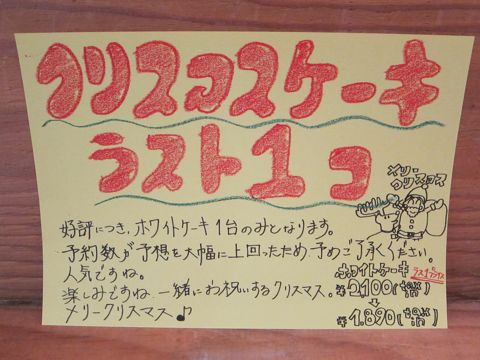 クリスマスケーキ
ラスト1コ
メリー
クリースマス
好評につき、ホワイトケーキ1台のみとなります。
予約数が予想を大幅に上回ったため、予めご了承ください。
人気ですね。
楽しみですね、一緒にお祝いするクリスマス。
メリークリスマス♪
ホワイトケーキ
ラストプライス
¥2,100(税込)
↓
¥1,890(税込)